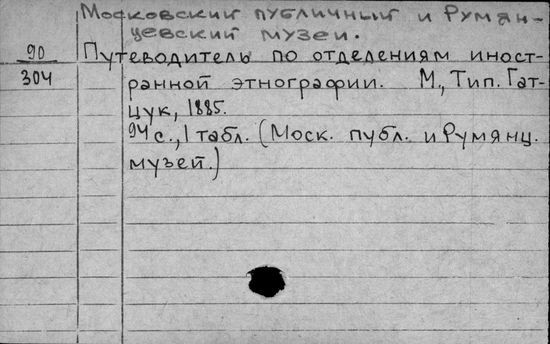 Московский публичный и Румян-
цевский музеи.
90
304
Путеводитель по отделениям иност-
ранной этнографии. М., Тип. Гат-
цук, 1885.
94 с., 1 табл. (Моск. публ. и Румянц.
музей.)